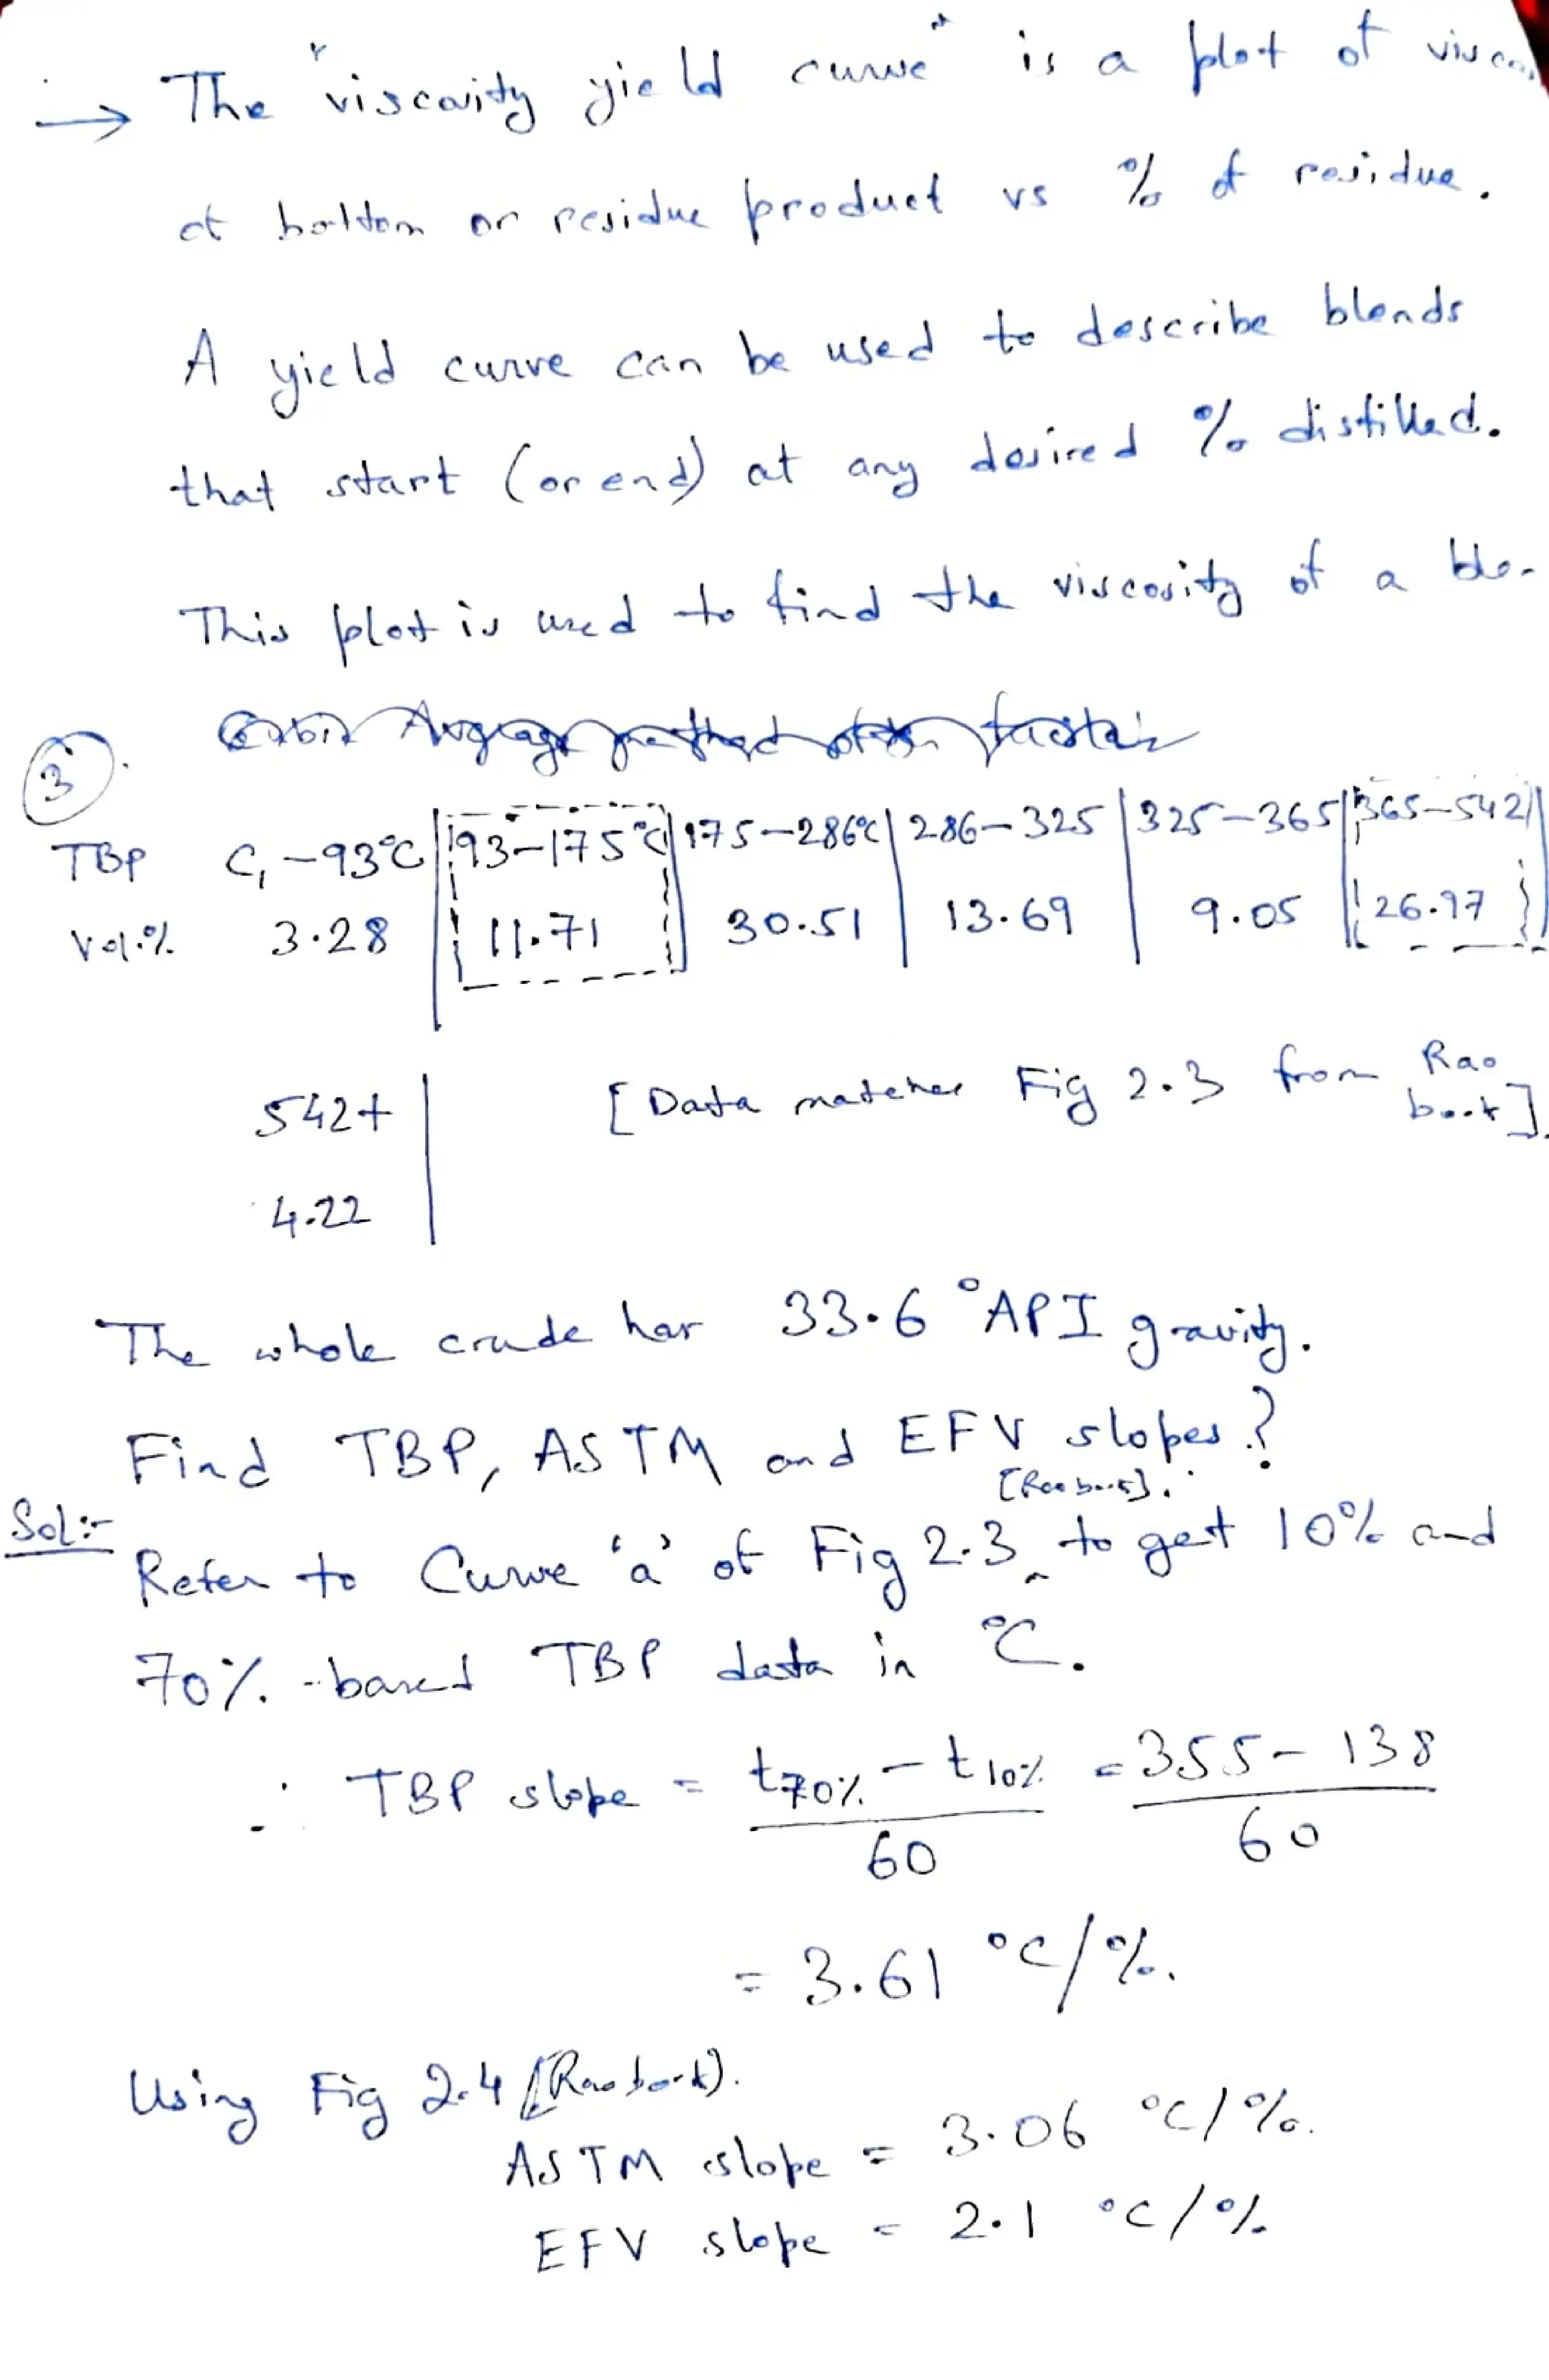 → The "viscosity yield curve" is a plot of
of bottom or residue product vs % of residue.
A yield curve can be used to describe blends
that start (or end) at any desired % distilled.
This plot is used to find the viscosity of a
3.
TBP C1-93°C | 93-175°C | 175-286°C | 286-325 | 325-365 | 365-542
Vol.% 3.28 | 11.71 | 30.51 | 13.69 | 9.05 | 26.97
542+ [Data matches Fig 2.3 from Rao book].
4.22
The whole crude has 33.6 °API gravity.
Find TBP, ASTM and EFV slopes?
Sol:- Refer to Curve 'a' of Fig 2.3 [Rao book] to get 10% and
70% -based TBP data in °C.
∴ TBP slope = (t70% - t10%)/60 = (355-138)/60
= 3.61 °C/%.
Using Fig 2.4 [Rao book).
ASTM slope = 3.06 °C/%.
EFV slope = 2.1 °C/%